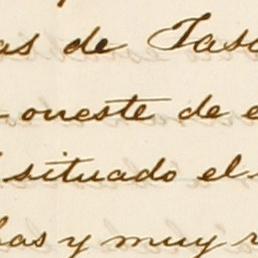 as de Tas
oueste de e
situado el
has y muy